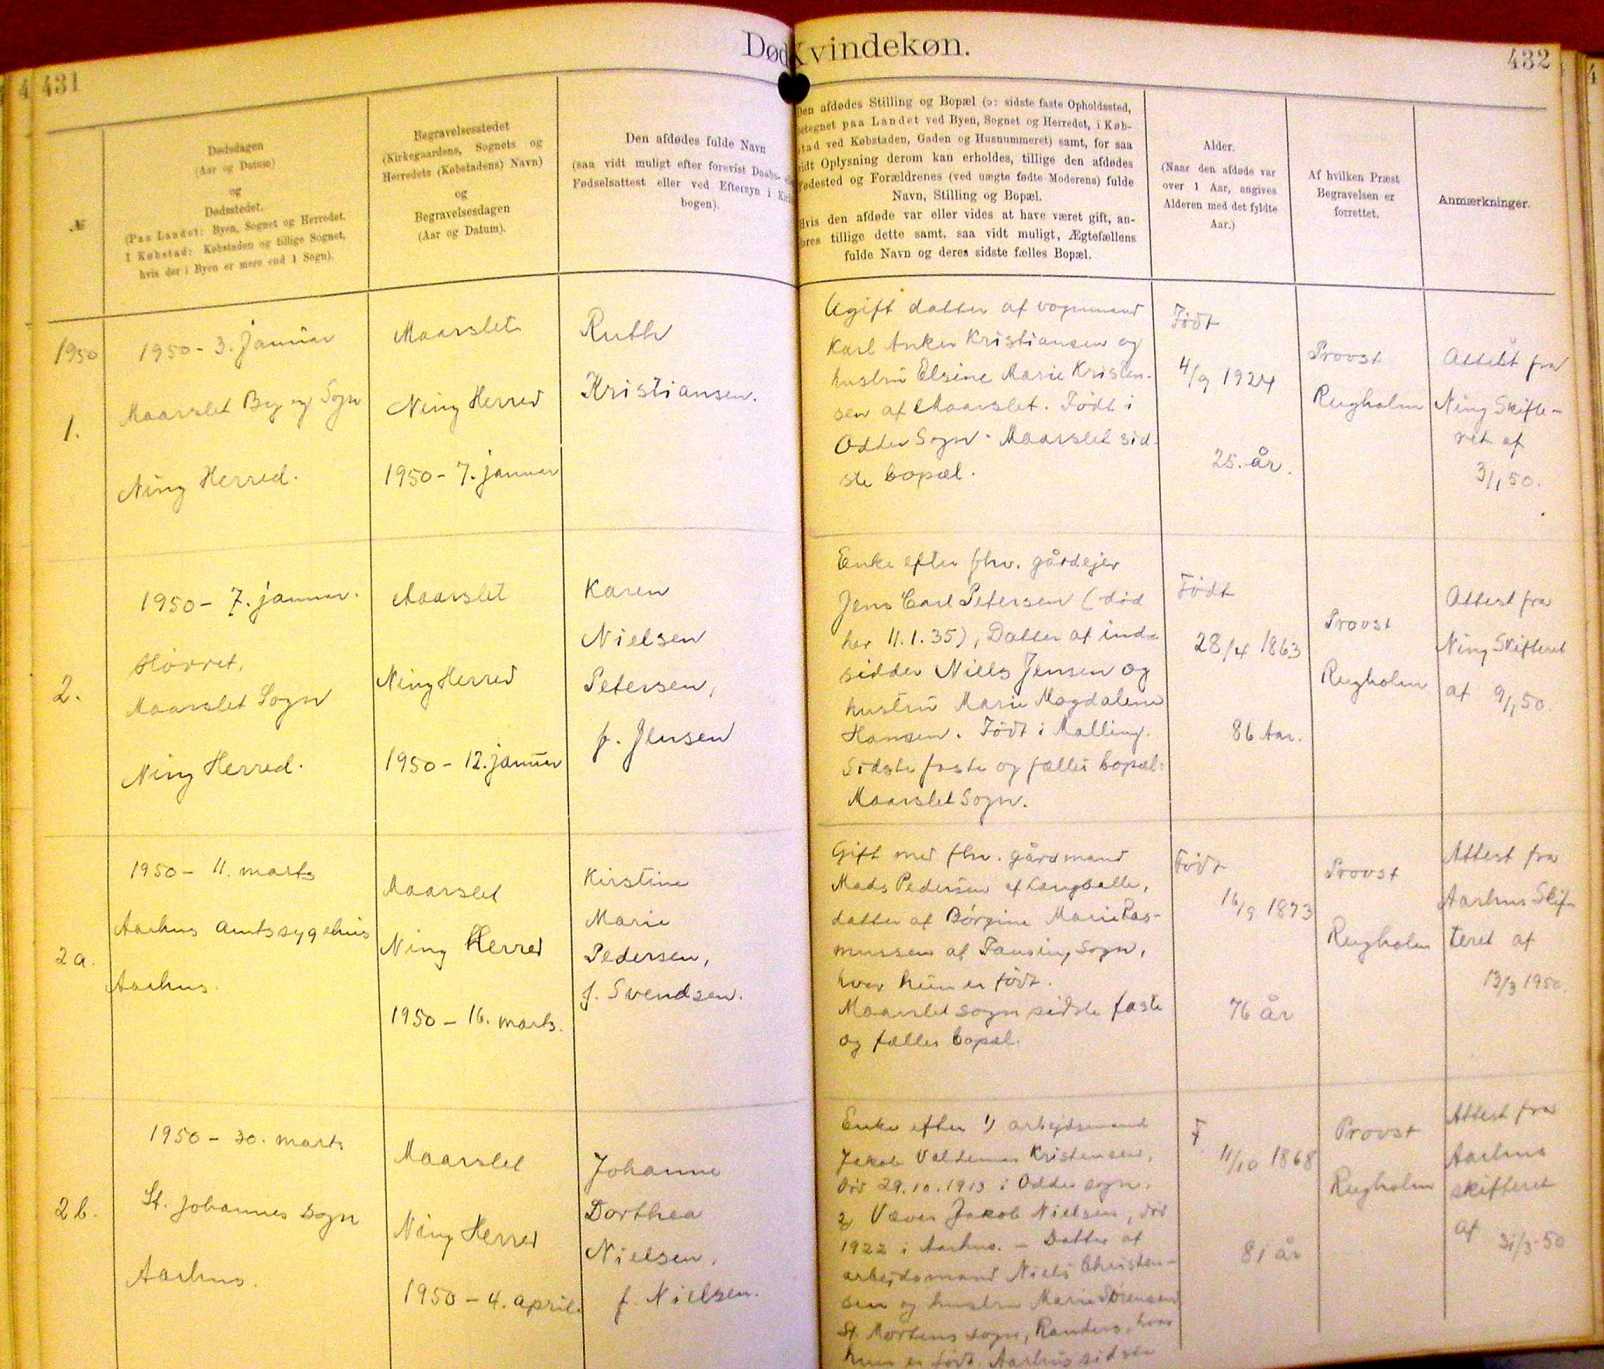 431
Død
Kvindekøn.
432
№
Dødsdagen
(Aar og Datum)
og
Dødsstedet.
(Paa Landet: Byen, Sognet og Herredet.
I Købstad: Købstaden og tillige Sognet,
hvis der i Byen er mere end 1 Sogn).
Begravelsesstedet
(Kirkegaardens, Sognets og
Herredets (Købstadens) Navn)
og
Begravelsesdagen
(Aar og Datum).
Den afdødes fulde Navn
(saa vidt muligt efter forevist Daabs-
Fødselsattest eller ved Eftersyn i
bogen).
Den afdødes Stilling og Bopæl (ɔ: sidste faste Opholdssted,
betegnet paa Landet ved Byen, Sognet og Herredet, i Køb-
stad ved Købstaden, Gaden og Husnummeret) samt, for saa
vidt Oplysning derom kan erholdes, tillige den afdødes
Fødested og Forældrenes (ved uægte fødte Moderens) fulde
Navn, Stilling og Bopæl.
Hvis den afdøde var eller vides at have været gift, an-
føres tillige dette samt, saa vidt muligt, Ægtefællens
fulde Navn og deres sidste fælles Bopæl.
Alder.
(Naar den afdøde var
over 1 Aar, angives
Alderen med det fyldte
Aar.)
Af hvilken Præst
Begravelsen er
forrettet.
Anmærkninger.
1950
1.
1950 - 3. januar
Maarslet By og Sogn
Ning Herred.
Maarslet
Ning Herred
1950 - 7. januar
Ruth
Kristiansen.
Ugift datter af vognmand
Karl Anker Kristiansen og
hustru Elsine Marie Kristen-
sen af Maarslet. Født i
Odder Sogn - Maarslet sid-
ste bopæl.
Født
4/9 1924
25. år.
Provst
Rugholm
Attest fra
Ning Skifte-
ret af
3/1 50.
2.
1950 - 7. januar.
Hørret,
Maarslet Sogn
Ning Herred.
Maarslet
Ning Herred
1950 - 12. januar
Karen
Nielsen
Petersen,
f. Jensen
Enke efter fhv. gårdejer
Jens Carl Petersen (død
her 11.1.35), Datter af ind-
sidder Niels Jensen og
hustru Marie Magdalene
Hansen. Født i Malling.
Sidste faste og fælles bopæl:
Maarslet Sogn.
Født
28/4 1863
86 Aar.
Provst
Rugholm
Attest fra
Ning Skifteret
af 9/1 50.
2a.
1950 - 11. marts
Aarhus amtssygehus
Aarhus.
Maarslet
Ning Herred
1950 - 16. marts.
Kirstine
Marie
Pedersen,
f. Svendsen.
Gift med fhv. gårdmand
Mads Pedersen af Langballe,
datter af Børgine Marie Ras-
mussen af Fausing Sogn,
hvor hun er født.
Maarslet sogn sidste faste
og fælles bopæl.
Født
16/9 1873
76 år
Provst
Rugholm
Attest fra
Aarhus Skif-
teret af
13/3 1950.
2b.
1950 - 30. marts
St. Johannes Sogn
Aarhus.
Maarslet
Ning Herred
1950 - 4. april.
Johanne
Dorthea
Nielsen,
f. Nielsen.
Enke efter 1) arbejdsmand
Jakob Valdemar Kristensen,
død 29.10.1913 i Odder sogn.
2) Væver Jakob Nielsen, død
1922 i Aarhus. - Datter af
arbejdsmand Niels Christen-
sen og hustru Marie Sørensen
St. Mortens sogn, Randers, hvor
hun er født. Aarhus sidste
F.
11/10 1868
81 år
Provst
Rugholm
Attest fra
Aarhus
skifteret
af 31/3-50